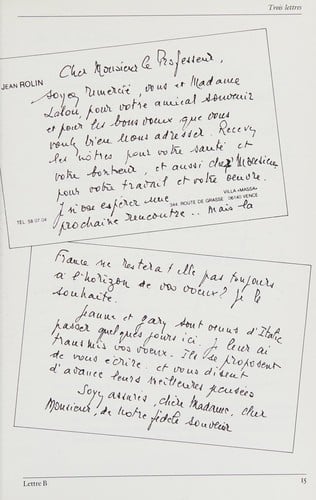 Trois lettres
JEAN ROLIN
Cher Monsieur le Professeur,
soyez remercié, vous et Madame
Lalou, pour votre amical souvenir
et pour les bons vœux que vous
voulez bien nous adresser. Recevez
les nôtres pour votre santé et
votre bonheur, et aussi cher Monsieur,
pour votre travail et votre œuvre.
J'n'ose espérer une
prochaine rencontre.. Mais la
VILLA «MASSA»
344, ROUTE DE GRASSE 06140 VENCE
TEL 58.07.04
France ne restera t elle pas toujours
à l'horizon de vos vœux? Je le
souhaite.
Jeanne et Gary sont venus d'Italie
passer quelques jours ici. Je leur ai
transmis vos vœux. Ils se proposent
de vous écrire. et vous disent
d'avance leurs meilleures pensées
Soyez assurés, chère Madame, cher
Monsieur, de notre fidèle souvenir
Lettre B
15